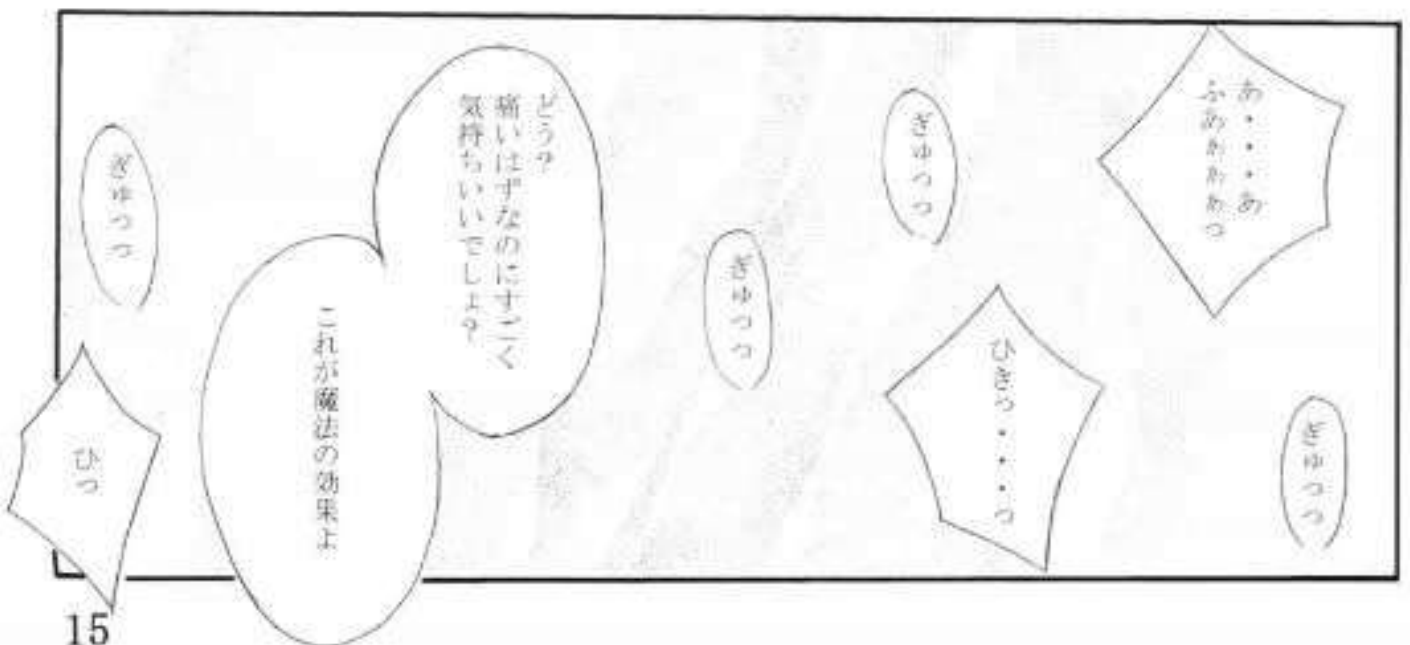 あ・・・あ
ふあぁぁぁぁっ
ぎゅっっ
ひきっ・・・っ
ぎゅっっ
ぎゅっっ
どう?
痛いはずなのにすごく
気持ちいいでしょ?
これが魔法の効果よ
ぎゅっっ
ひっ
15